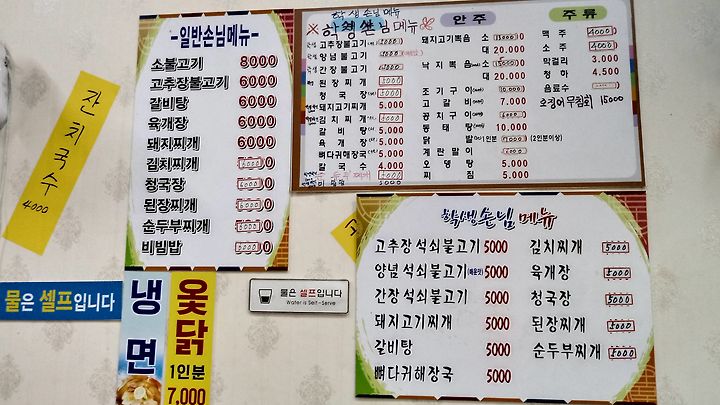 -일반손님메뉴-
소불고기 8000
고추장불고기 6000
갈비탕 6000
육개장 6000
돼지찌개 6000
김치찌개 6000
청국장 6000
된장찌개 6000
순두부찌개
비빔밥
잔치국수
4000
물은 셀프입니다
냉면
옻닭
1인분
7,000
학생손님메뉴
※학생손님메뉴※
고추장불고기
양념불고기
간장불고기
된장찌개
청국장
돼지고기찌개 5.000
김치찌개
갈비탕 5.000
육개장 5.000
뼈다귀해장국 5.000
칼국수 4.000
5000
안주
돼지고기볶음 소
대 20.000
낙지볶음 소
대 20.000
조기구이 10,000
고갈비 7.000
꽁치구이
동태탕 10.000
닭발(1인분) (2인분이상)
계란말이
오뎅탕 5.000
찌짐 5.000
주류
맥주 4000
소주 4000
막걸리 3,000
청하 4,500
음료수
오징어무침회 15000
물은 셀프입니다
Water is Self-Serve
학생손님 메뉴
고추장 석쇠불고기 5000
양념 석쇠불고기(매운맛) 5000
간장 석쇠불고기 5000
돼지고기찌개 5000
갈비탕 5000
뼈다귀해장국 5000
김치찌개 5000
육개장 5000
청국장 5000
된장찌개 5000
순두부찌개 5000